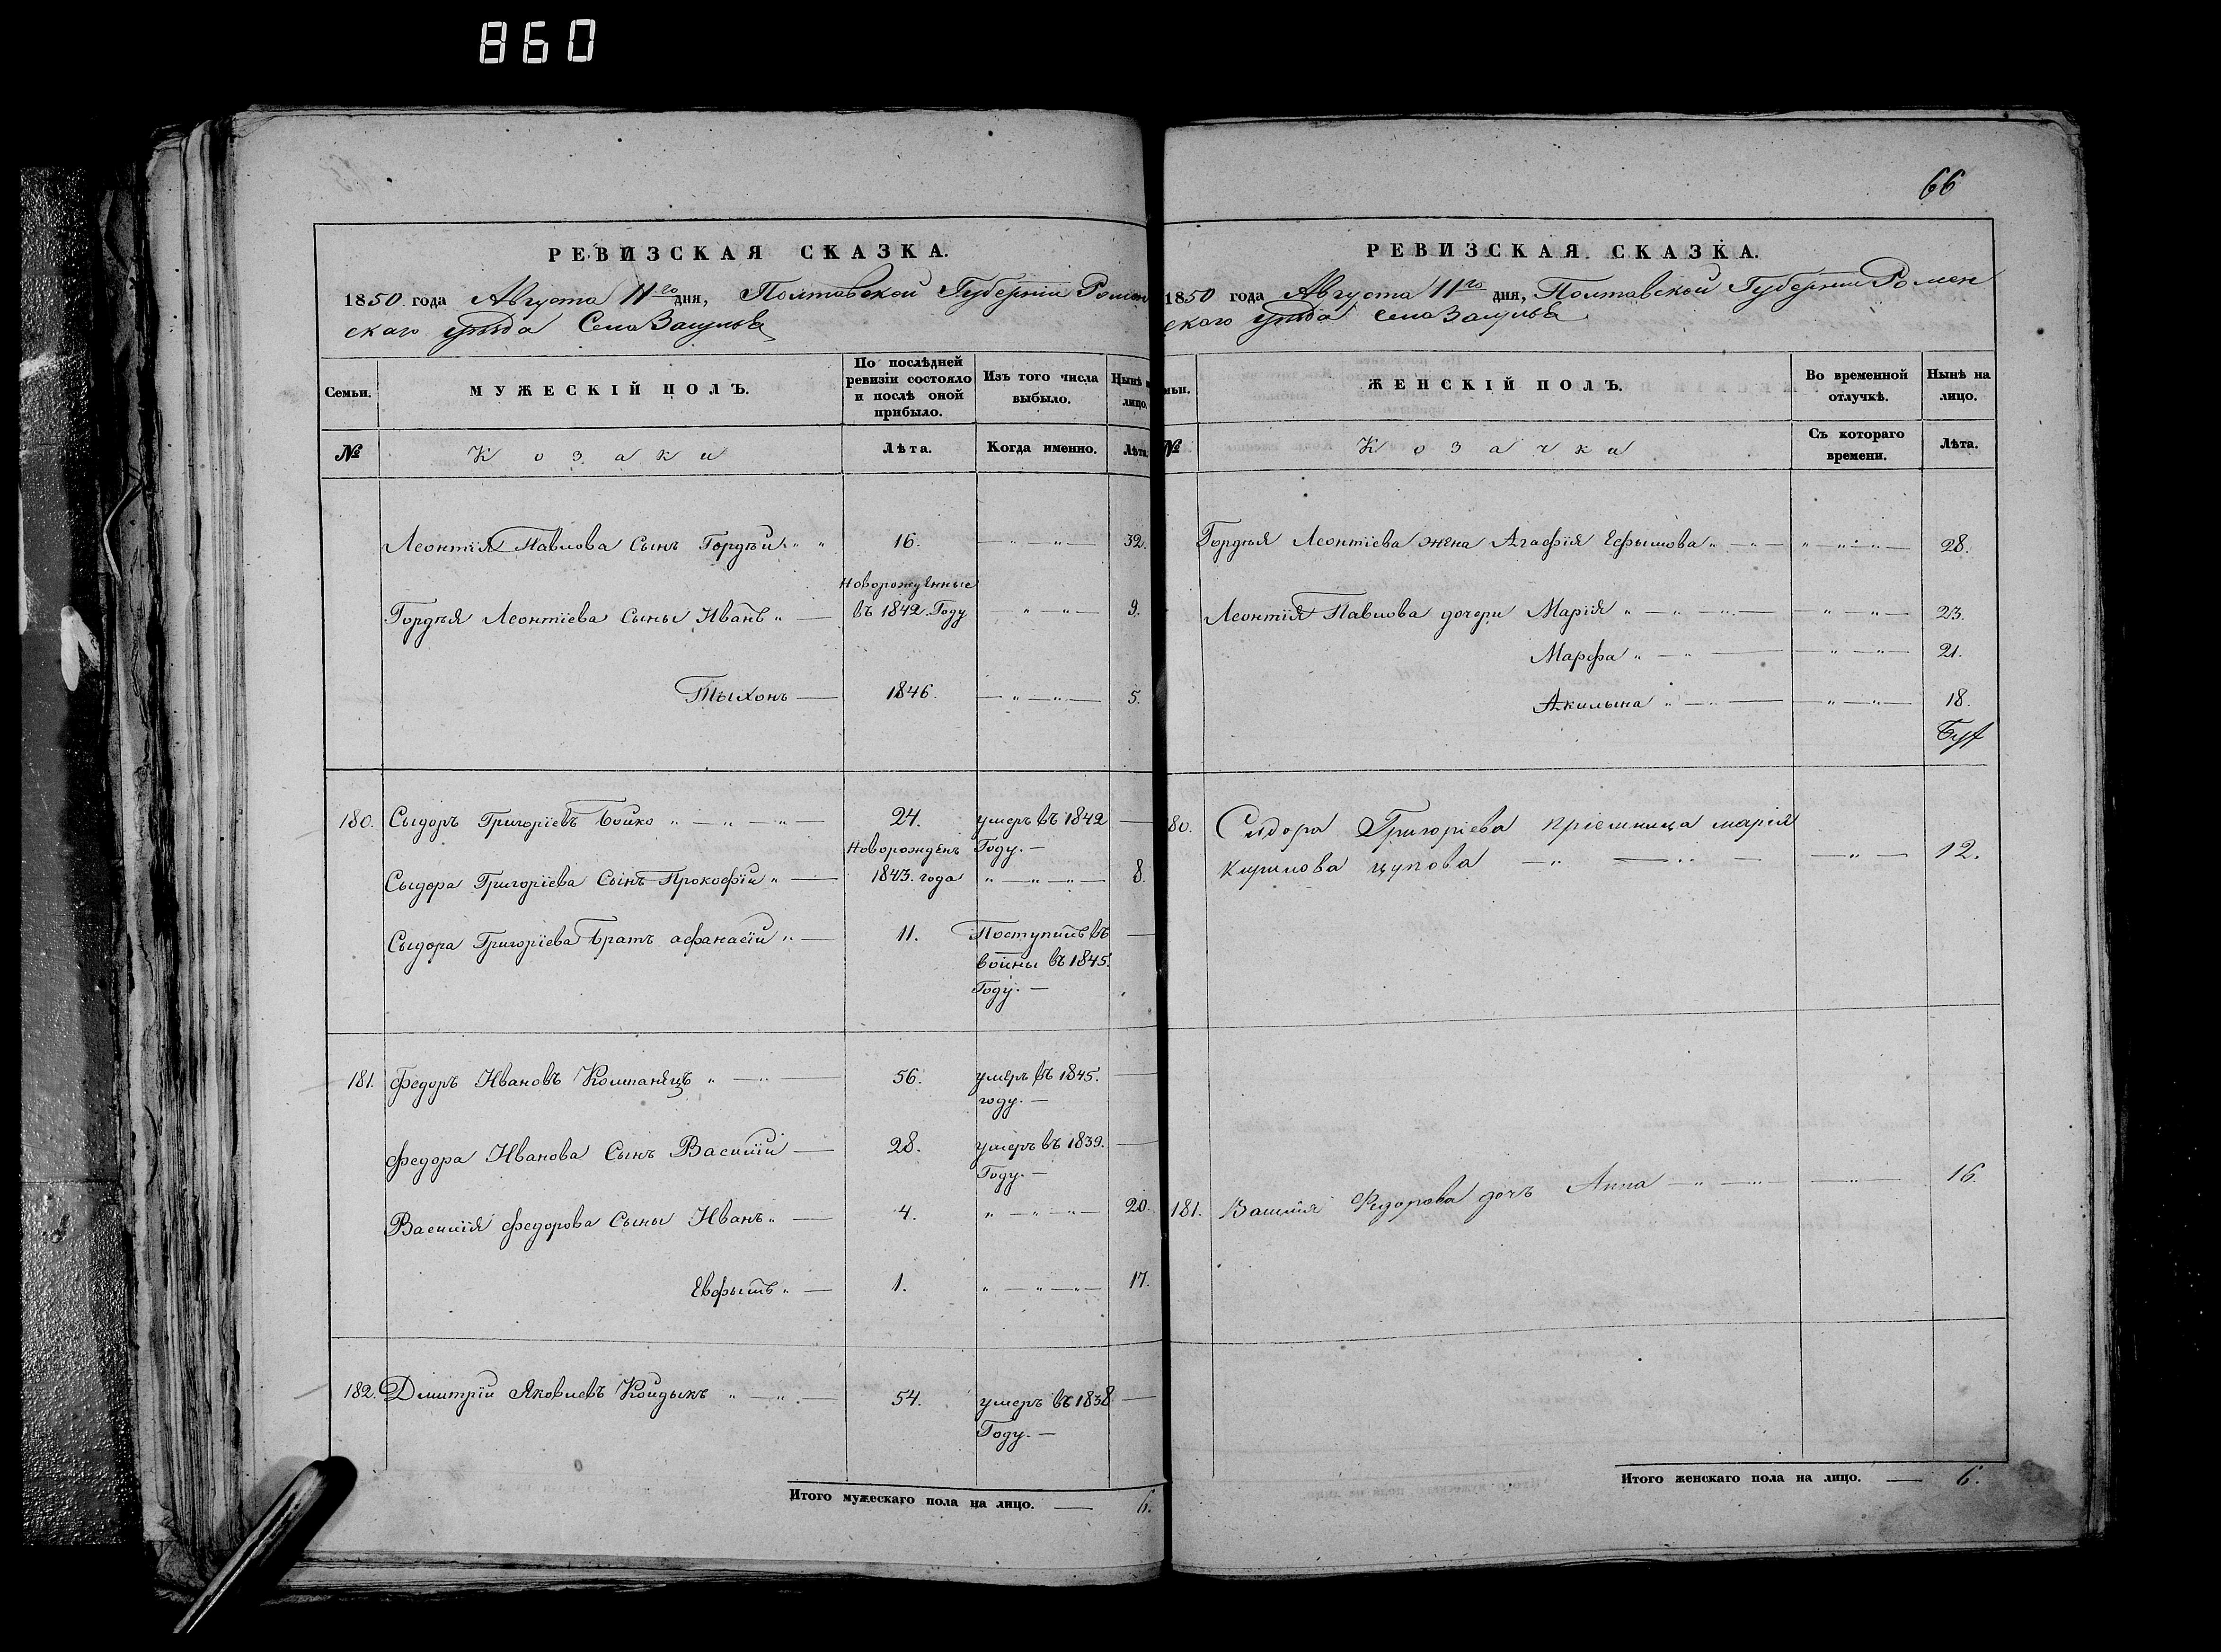 860
РЕВИЗСКАЯ СКАЗКА.
1850 года Августа 11го дня, Полтавской Губернии Ромен
скаго уѣзда Села Засулья
Семьи.
МУЖЕСКІЙ ПОЛЪ.
По послѣдней ревизіи состояло и послѣ оной прибыло.
Изъ того числа выбыло.
Нынѣ на лицо.
№
Козаки
Лѣта.
Когда именно.
Лѣта
Леонтія Павлова Сынъ Гордѣй 16. 32.
Новорожденные
Гордѣя Леонтіева Сыны Иванъ въ 1842 Году 9.
Тыхонъ 1846. 5.
180. Сыдоръ Григоріевъ Бойко 24. умеръ въ 1842
Новорожденъ Году.
Сыдора Григоріева Сынъ Прокофій 1843. года 8.
Сыдора Григоріева братъ афанасій 11. Поступилъ въ
войны въ 1845.
Году.
181. Федоръ Ивановъ Компанѣцъ 56. умеръ въ 1845.
году.
Федора Иванова Сынъ Василій 28. умеръ въ 1839.
Году.
Василія Федорова Сыны Иванъ 4. 20.
Евфымъ 1. 17.
182. Дмитрій Яковлевъ Койдыкъ 54. умеръ въ 1838
Году.
Итого мужескаго пола на лицо. 6.
66
РЕВИЗСКАЯ СКАЗКА.
1850 года Августа 11го дня, Полтавской Губернии Ромен
скаго уѣзда села Засулья
мьи.
ЖЕНСКІЙ ПОЛЪ.
Во временной отлучкѣ.
Нынѣ на лицо.
№
Козачки
Съ котораго времени.
Лѣта.
Гордѣя Леонтіева жена Агафія Ефымова 28.
Леонтія Павлова дочери Марія 23.
Марфа 21.
Акилына 18.
80. Сидора Григоріева пріемница марія
Кирилова цупова 12.
181. Василія Федорова дочь Анна 16.
Итого женскаго пола на лицо. 6.